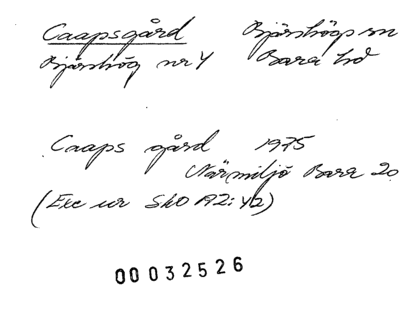 Caapsgård Bjärshögs sn
Bjärshög nr 4 Bara hd
Caaps gård 1975
Närmiljö Bara 20
(Exc ur SkO A2:42)
00032526